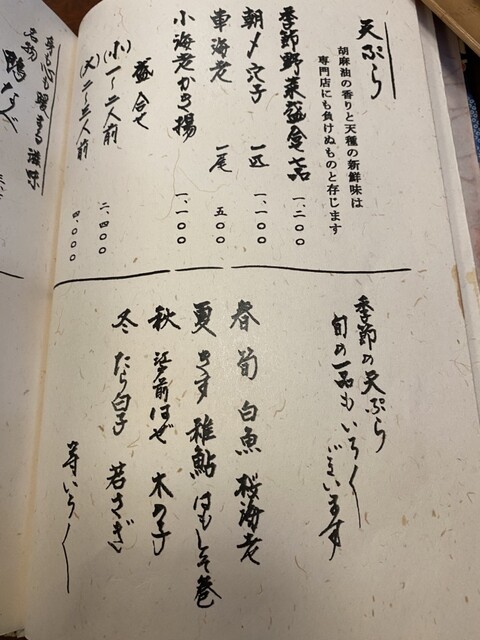 天ぷら
胡麻油の香りと天種の新鮮味は
専門店にも負けぬものと存じます
季節野菜盛合せ七品 一、二〇〇
朝〆穴子 一匹 一、一〇〇
車海老 一尾 五〇〇
小海老かき揚 一、一〇〇
盛合せ
(小)一〜二人前 二、四〇〇
(大)二〜三人前 四、〇〇〇
季節の天ぷら
旬の一品もいろ〱
ございます
春 筍 白魚 桜海老
夏 きす 稚鮎 はもしそ巻
秋 江戸前はぜ 木の子
冬 たら白子 若さぎ
等いろ〱
身も心も暖まる滋味
名物
鴨なべ